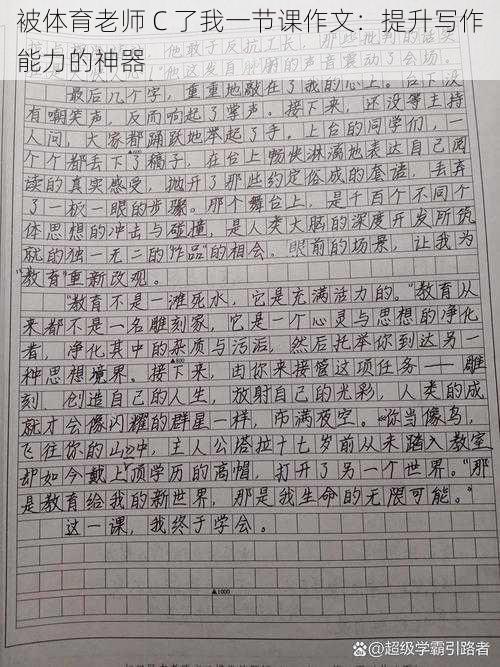 被体育老师C了我一节课作文：提升写作
能力的神器
最后几个字，重重地敲在了我的心上。台下没
有嘲笑声，反而响起了掌声。接下来，还没等主持
人问，大家都踊跃地举起了手，上台的同学们，一
个个都丢下了稿子，在台上畅快淋漓地表达自己阅
读的真实感受，抛开了那些约定俗成的套话，丢弃
了一板一眼的步骤。那个舞台上，是千百个不同个
体思想的冲击与碰撞，是人类大脑的深度开发所筑
就的独一无二的“作品”的相会。眼前的场景，让我为
“教育”重新改观。
“教育不是一滩死水，它是充满活力的。”教育从
来都不是一名雕刻家，它是一个心灵与思想的净化
者，净化其中的杂质与污垢，然后托举你到达另一
种思想境界。接下来，由你来接管这项任务——雕
刻，创造自己的人生，放射自己的光彩，人类的成
就才会像闪耀的群星一样，布满夜空。“你当像鸟，
飞往你的山”中，主人公塔拉十七岁前从未踏入教室
却如今戴上顶学历的高帽，打开了另一个世界。“那
是教育给我的新世界，那是我生命的无限可能。”
这一课，我终于学会。
▲800
▲1000
@超级学霸引路者